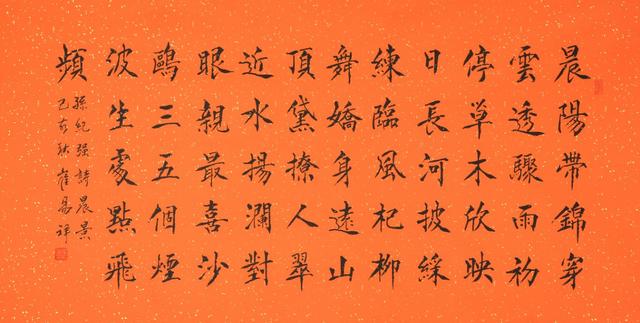 晨陽帶錦穿
雲透驟雨初
停草木欣映
日長河披綵
練臨風杞柳
舞嬌身遠山
頂黛撩人翠
近水揚瀾對
眼親最喜沙
鷗三五個煙
波生處點飛
頻
孫紀强詩晨景
己亥秋崔易祥